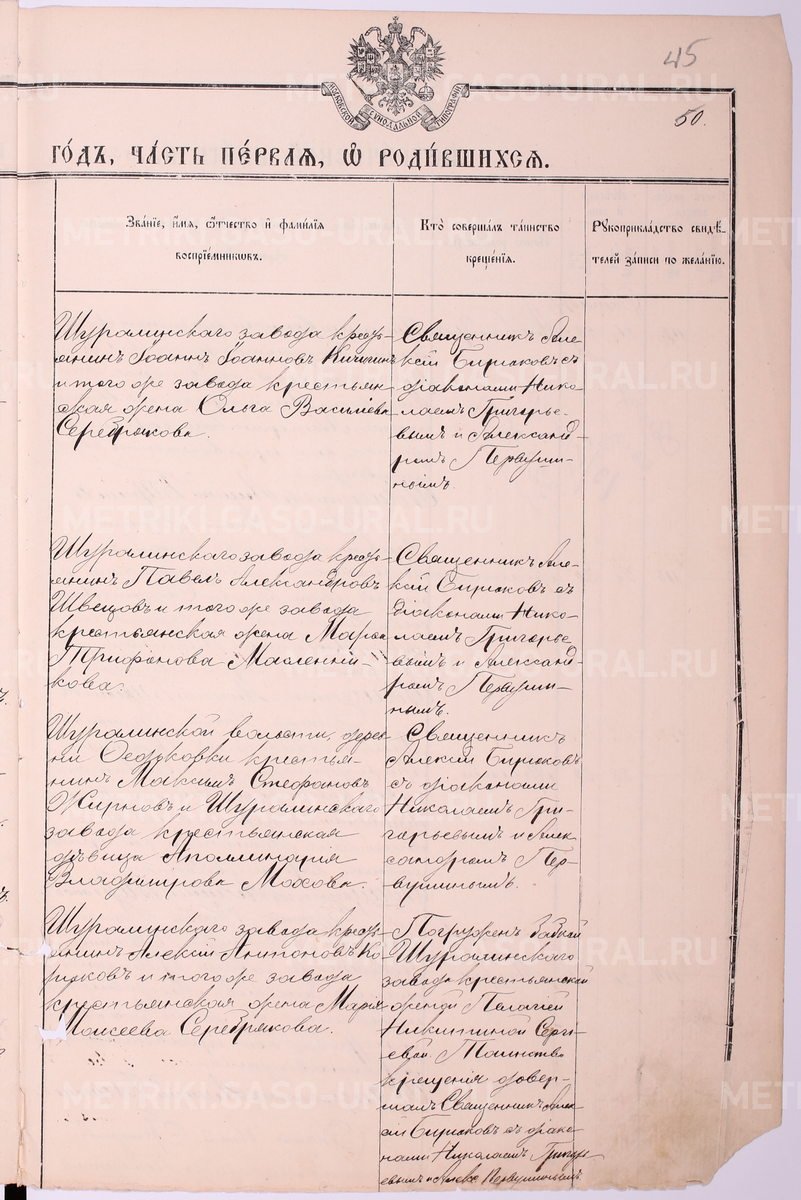 45
50.
МОСКОВСКОЙ СѴНОДАЛЬНОЙ ТИПОГРАФІИ
ГО́ДЪ, ЧА́СТЬ ПЕ́РВАѦ, Ѡ҆ РОДИ́ВШИХСѦ.
Зва́нїе, и҆́мѧ, ѻ҆́тчество и҆ фами́лїѧ
воспрїе́мникѡвъ.
Кто̀ соверша́лъ та́инство
креще́нїѧ.
Рꙋкоприкла́дство свидѣ́-
телей за́писи по жела́нїю.
Шуралинскаго завода кресть-
янинъ Іоаннъ Іоанновъ Кичигинъ
и того же завода крестьян-
ская жена Ольга Васильева
Серебрякова.
Священникъ Але-
ксій Бирюковъ съ
діаконами Нико-
лаемъ Григорье-
вымъ и Александ-
ромъ Первуши-
нымъ.
Шуралинскаго завода кресть-
янинъ Павелъ Александровъ
Швецовъ и того же завода
крестьянская жена Марья
Трифонова Масленни-
кова.
Священникъ Але-
ксій Бирюковъ съ
діаконами Нико-
лаемъ Григорье-
вымъ и Александ-
ромъ Первуши-
нымъ.
Шуралинской волости, дерев-
ни Осдьковки крестья-
нинъ Максимъ Стефановъ
Жирновъ и Шуралинскаго
завода крестьянская
дѣвица Аполлинарія
Владимірова Мохова.
Священникъ
Алексій Бирюковъ
съ діаконами
Николаемъ Гри-
горьевымъ и Алек-
сандромъ Пер-
вушинымъ.
Шуралинскаго завода кресть-
янинъ Алексій Антоновъ Ко-
ржковъ и того же завода
крестьянская жена Марія
Моисеева Серебрякова.
Погруженъ бабкой
Шуралинскаго
завода крестьянской
женой Пелагіей
Никитиной Серг-
евой. Таинство
крещенія довер-
шалъ Священникъ Алек-
сій Бирюковъ съ діако-
нами Николаемъ Григорь-
евымъ и Алекс. Первушинымъ
METRIKI.GASO-URAL.RU